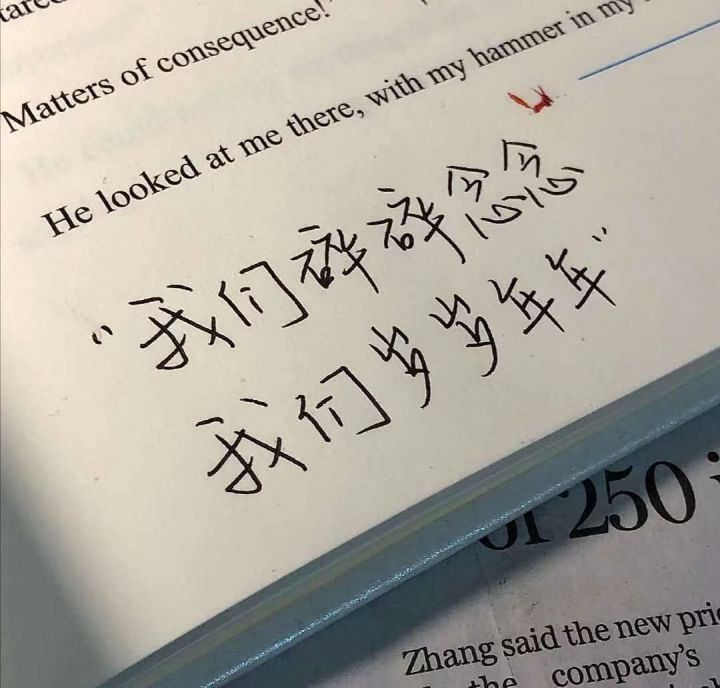 Matters of consequence!
He looked at me there, with my hammer in my
“我们碎碎念念
我们岁岁年年”
of 250
Zhang said the new
the company's